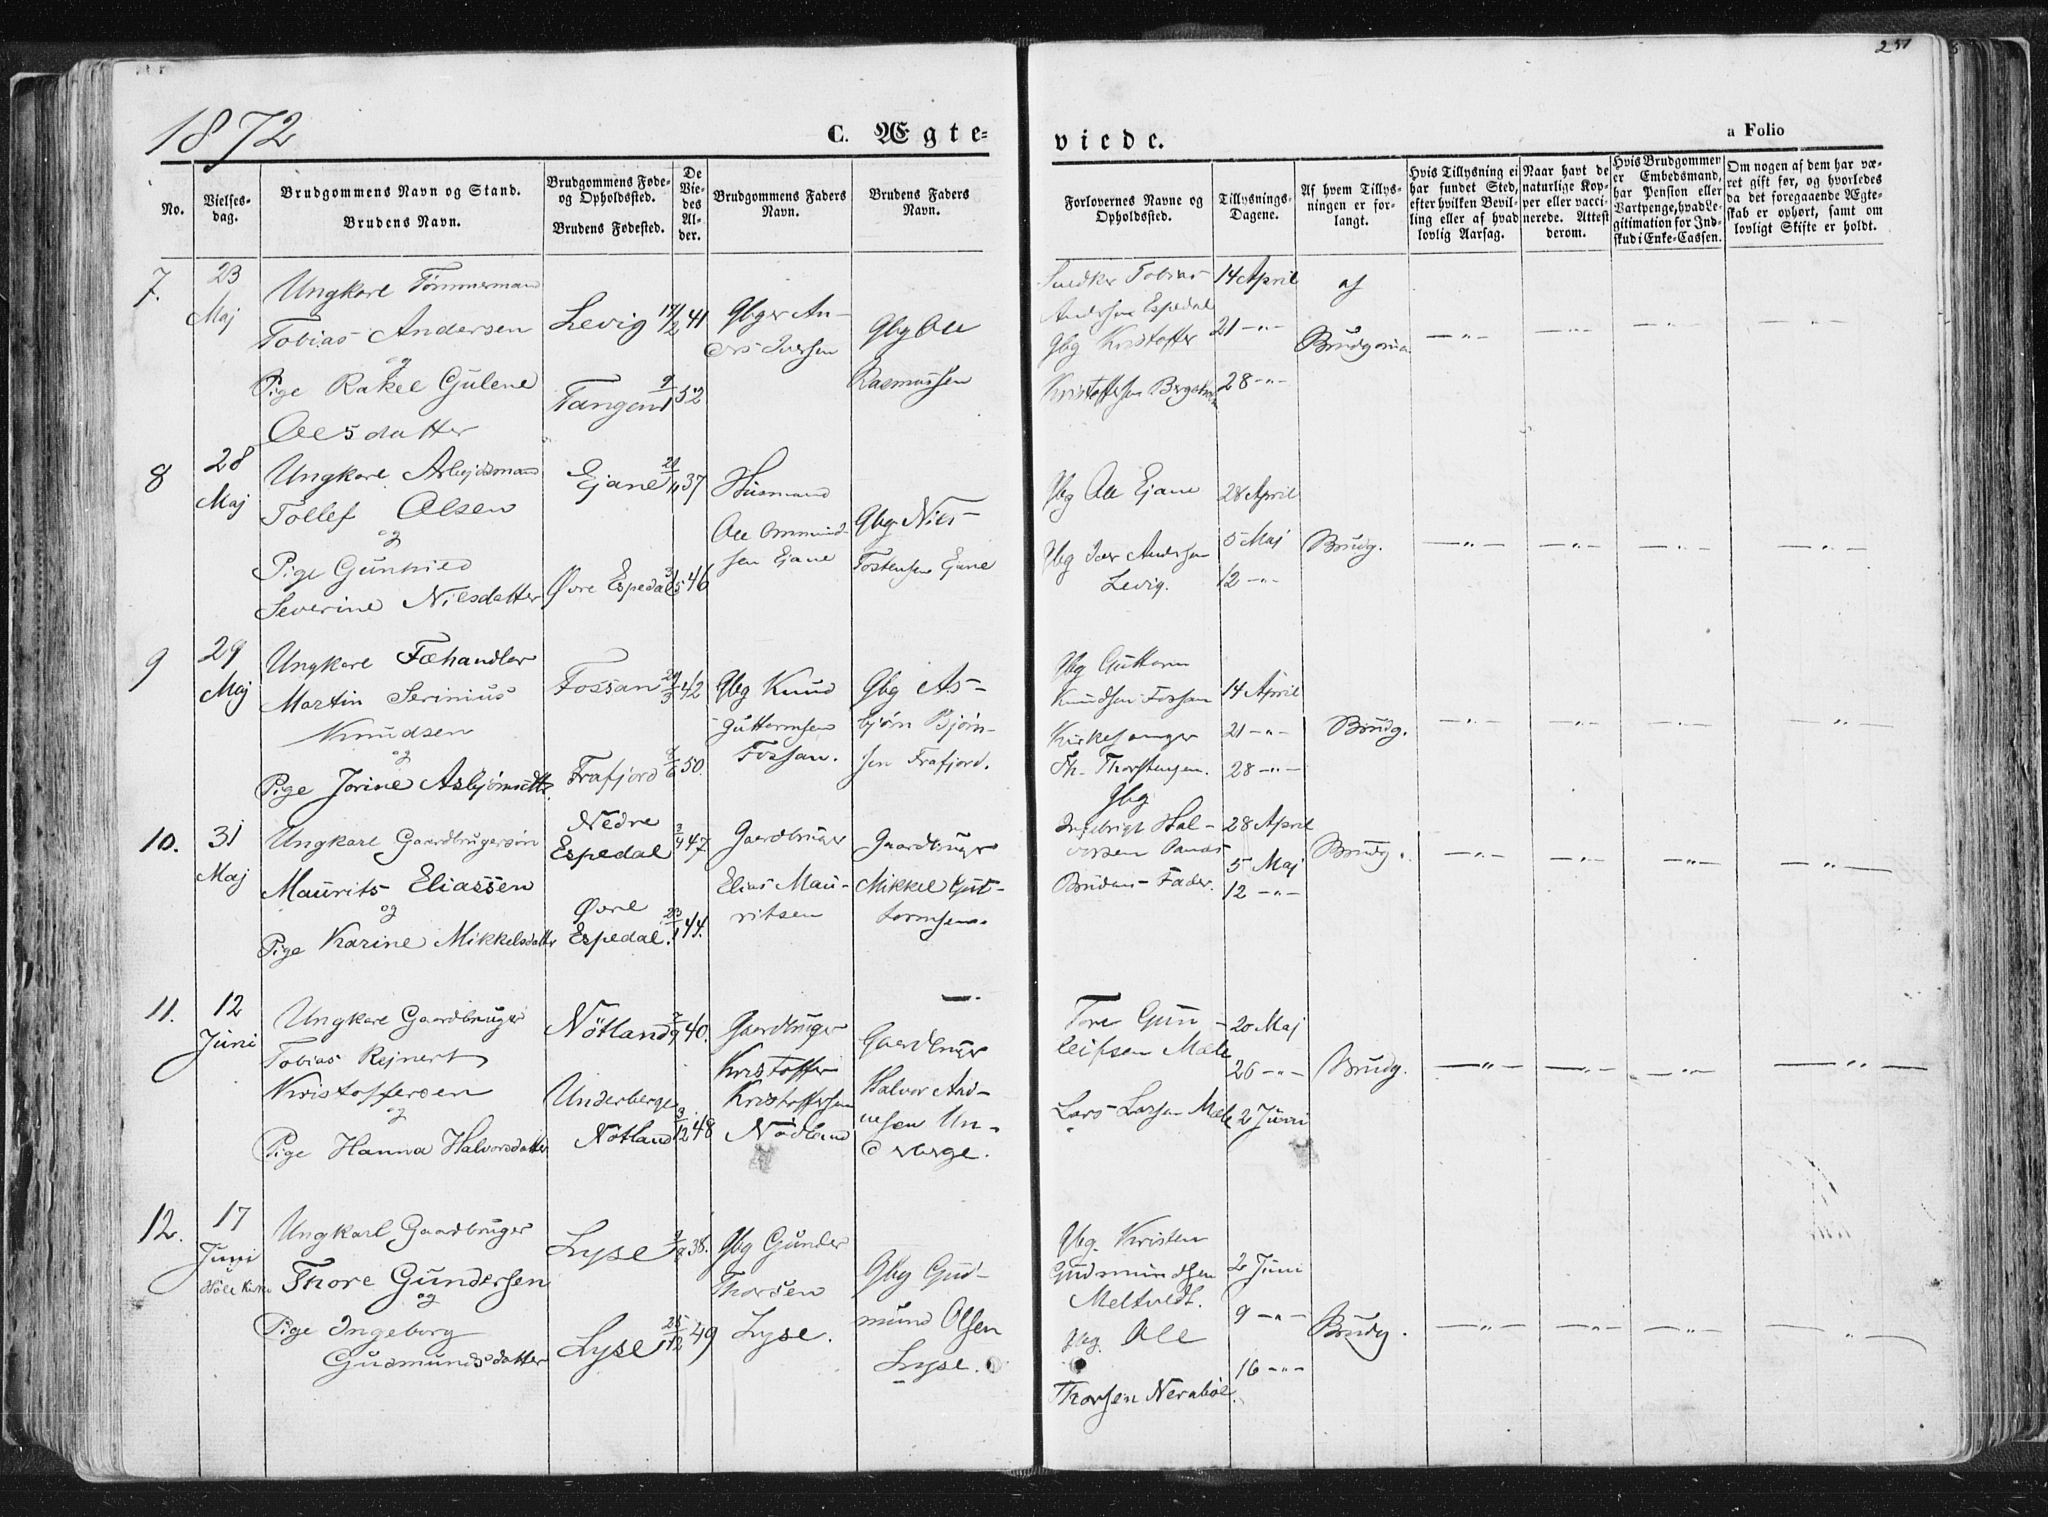 251
1872
C. Ægte=
viede.
a Folio
No.
Vielses-
dag.
Brudgommens Navn og Stand.
Brudens Navn.
Brudgommens Føde-
og Opholdssted.
Brudens Fødested.
De
Vie-
des
Al-
der.
Brudgommens Faders
Navn.
Brudens Faders
Navn.
Forlovernes Navne og
Opholdssted.
Tillysnings-
Dagene.
Af hvem Tillys-
ningen er for-
langt.
Hvis Tillysning ei
har fundet Sted,
efter hvilken Bevil-
ling eller af hvad
lovlig Aarsag.
Naar havt de
naturlige Kop-
per eller vacci-
nerede. Attest
derom.
Hvis Brudgommen
er Embedsmand,
har Pension eller
Vartpenge, hvad Le-
gitimation for Ind-
skud i Enke-Cassen.
Om nogen af dem har væ-
ret gift før, og hvorledes
da det foregaaende Ægte-
skab er ophørt, samt om
lovligt Skifte er holdt.
7.
23
Maj
Ungkarl Tømmermand
Tobias Andersen
og
Pige Rakel Gulene
Olesdatter
Levig 17/2 41
Tangen 9/1 52
Gbger An-
ders Iversen
Gbg Ole
Rasmussen
Snedker Tobias
Andersen Espedal
Gbg Kristoffer
Kristoffersen
14 April
21 -"-
28 -"-
af
Brudgomm.
8
28
Maj
Ungkarl Arbejdsmand
Tollef Olsen
og
Pige Gunhild
Severine Nilsdatter
Ejane 37
Øvre Espedal 3/5 46
Husmand
Ole Ommund-
sen Ejane
Gbg Nils
Tostensen Ejane
Gbg Ole Ejane
Gbg Iver Andersen
Levig.
28 April
5 Maj
12 -"-
Brudg.
9
29
Maj
Ungkarl Fæhandler
Martin Serinius
Knudsen
og
Pige Jorine Asbjørnsdtr
Fossan 42
Frafjord 50.
Gbg Knud
Guttormsen
Fossan.
Gbg As-
bjørn Bjørn-
sen Frafjord.
Gbg Guttorm
Knudsen Fossan
Kirkesanger
Th. Thorstensen.
14 April
21 -"-
28 -"-
Brudg.
10.
31
Maj
Ungkarl Gaardbrugersøn
Maurits Eliassen
og
Pige Karine Mikkelsdatter
Nedre
Espedal 47
Øvre
Espedal. 23/1 44.
Gaardbruger
Elias Mau-
ritsen
Gaardbruger
Mikkel Gut-
tormsen.
Gbg
Ingebrigt Hal-
vorsen
Brudens Fader.
28 April
5 Maj
12 -"-
Brudg.
11.
12
Juni
Ungkarl Gaardbruger
Tobias Rejnert
Kristoffersen
og
Pige Hanna Halvorsdatter
Nötland 40.
Underberge
Nötland 3/12 48
Gaardbruger
Kristoffer
Kristoffersen
Nödland
Gaardbruger
Halvor Aad-
nesen Un-
derberge.
Tore Gun-
leifsen Mæle
Lars Larsen Mæle
20 Maj
26 -"-
2 Juni
Brudg.
12.
17
Juni
Høle Kirke
Ungkarl Gaardbruger
Thore Gundersen
og
Pige Ingeborg
Gudmundsdatter
Lyse 38.
Lyse 25/12 49
Gbg Gunder
Thorsen
Lyse.
Gbg Gud-
mund Olsen
Lyse.
Gbg. Kristen
Gudmundsen
Meltvedt.
Gbg. Ole
Thorsen Nerabøe.
2 Juni
9 -"-
16 -"-
Brudg.